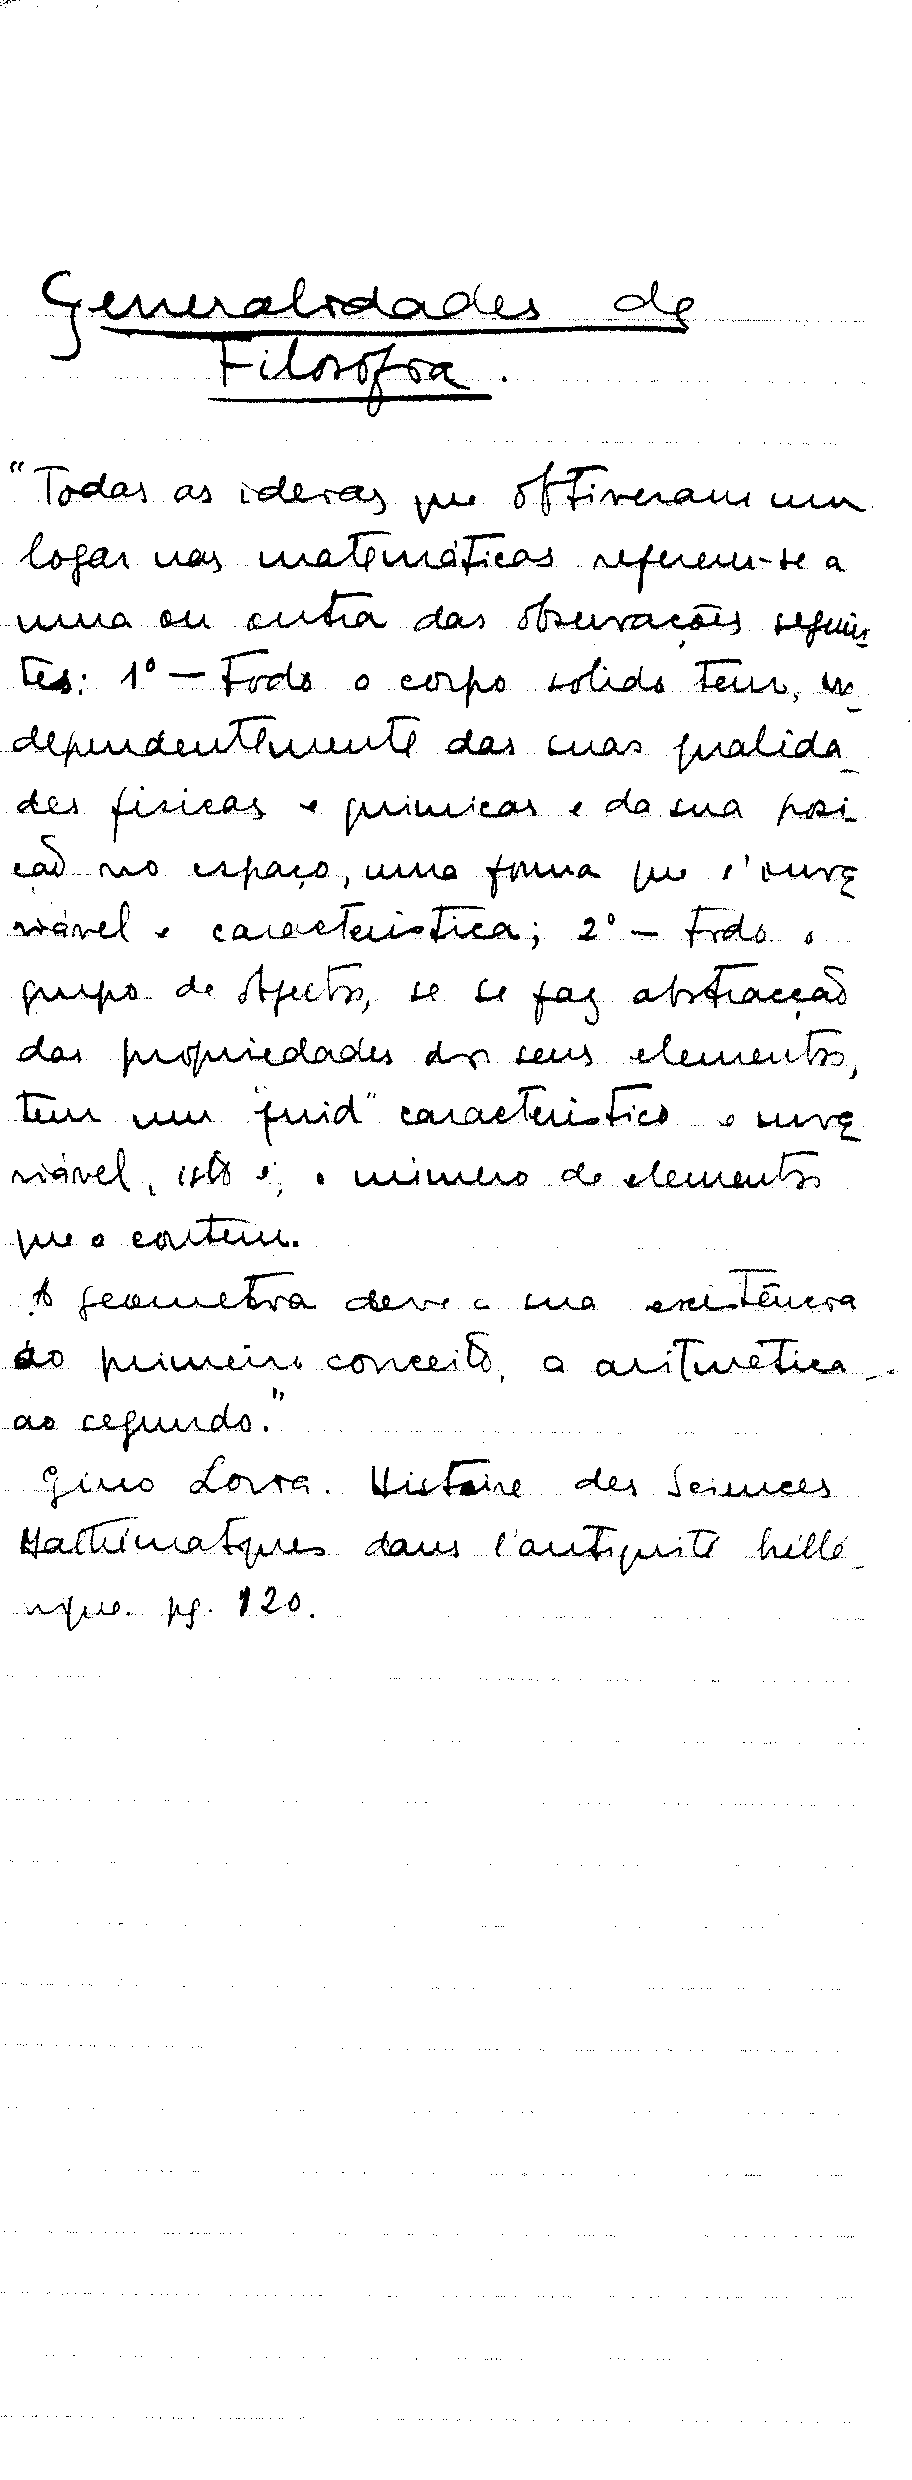 Generalidades de
Filosofia.
"Todas as ideias que obtiveram um
logar nas matemáticas referem-se a
uma ou outra das observações seguin
tes: 1º - Todo o corpo solido tem, in_
dependentemente das suas qualida_
des fisicas e quimicas e da sua posi_
ção no espaço, uma forma que é inva
riável e caracteristica; 2º - Todo o
grupo de objectos, se se faz abstracção
das propriedades dos seus elementos,
tem um "quid" caracteristico e inva
riável, isto é, o número de elementos
que o contem.
A geometria deve a sua existência
ao primeiro conceito, a aritmética
ao segundo."
Gino Loria. Histoire des Sciences
Mathématiques dans l'antiquité hellé_
nique. pg. 120.